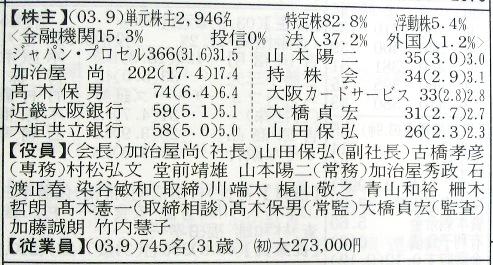 【株主】(03.9)単元株主2,946名 特定株82.8% 浮動株5.4%
<金融機関15.3% 投信0% 法人37.2% 外国人1.2%>
ジャパン・プロセル366(31.6)31.5 山本陽二 35(3.0)3.0
加治屋 尚 202(17.4)17.4 持株会 34(2.9)3.1
髙木保男 74(6.4)6.4 大阪カードサービス 33(2.8)2.8
近畿大阪銀行 59(5.1)5.1 大橋貞宏 31(2.7)2.7
大垣共立銀行 58(5.0)5.0 山田保弘 26(2.3)2.3
【役員】(会長)加治屋尚(社長)山田保弘(副社長)古橋孝彦
(専務)村松弘文 堂前靖雄 山本陽二(常務)加治屋秀政 石
渡正春 染谷敏和(取締)川端太 梶山敬之 青山和裕 柵木
哲朗 髙木憲一(取締相談)髙木保男(常監)大橋貞宏(監査)
加藤誠朗 竹内慧子
【従業員】(03.9)745名(31歳) (初)大273,000円